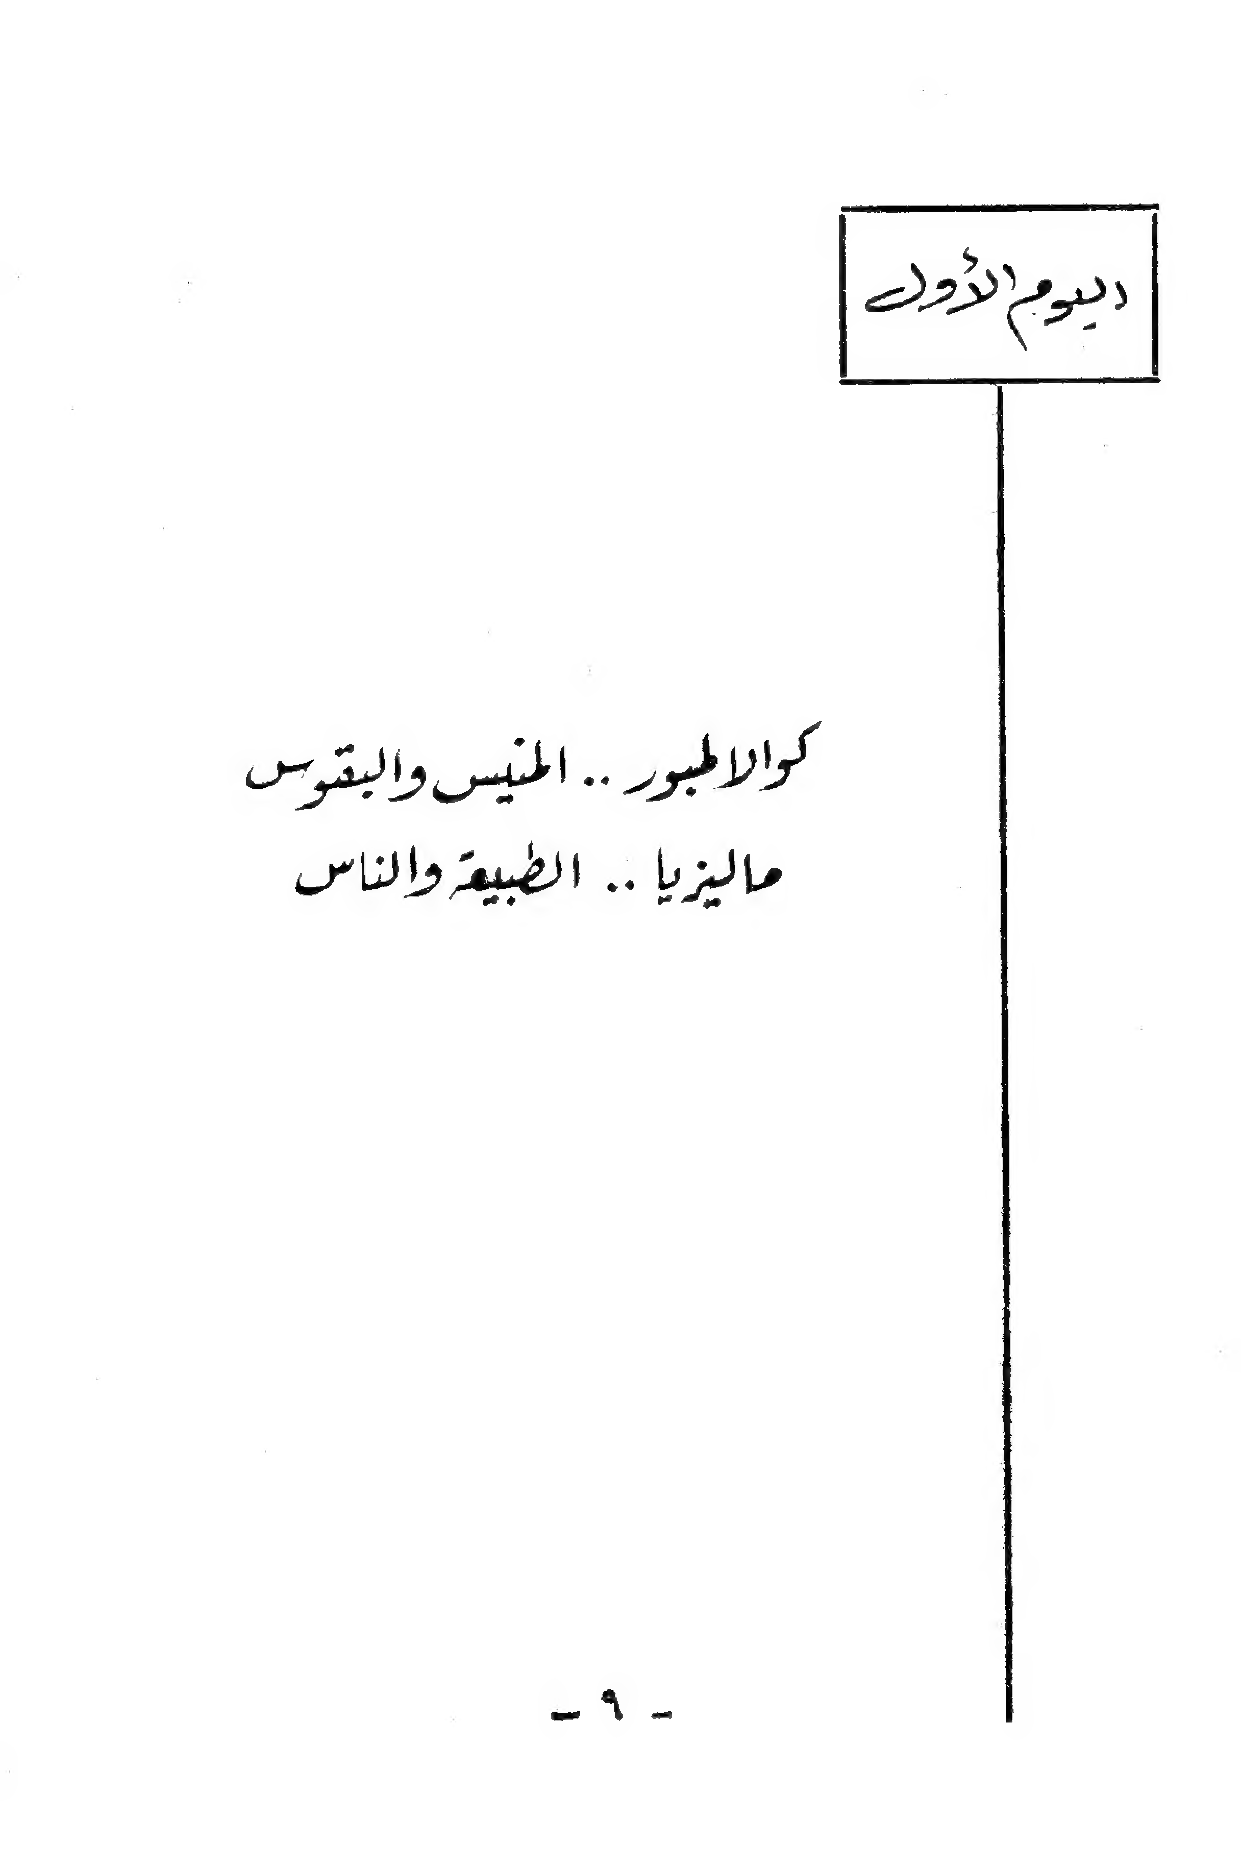 اليوم الأول
كوالالمبور .. المنيس والبقوس
ماليزيا .. الطبيعة والناس
- ٩ -